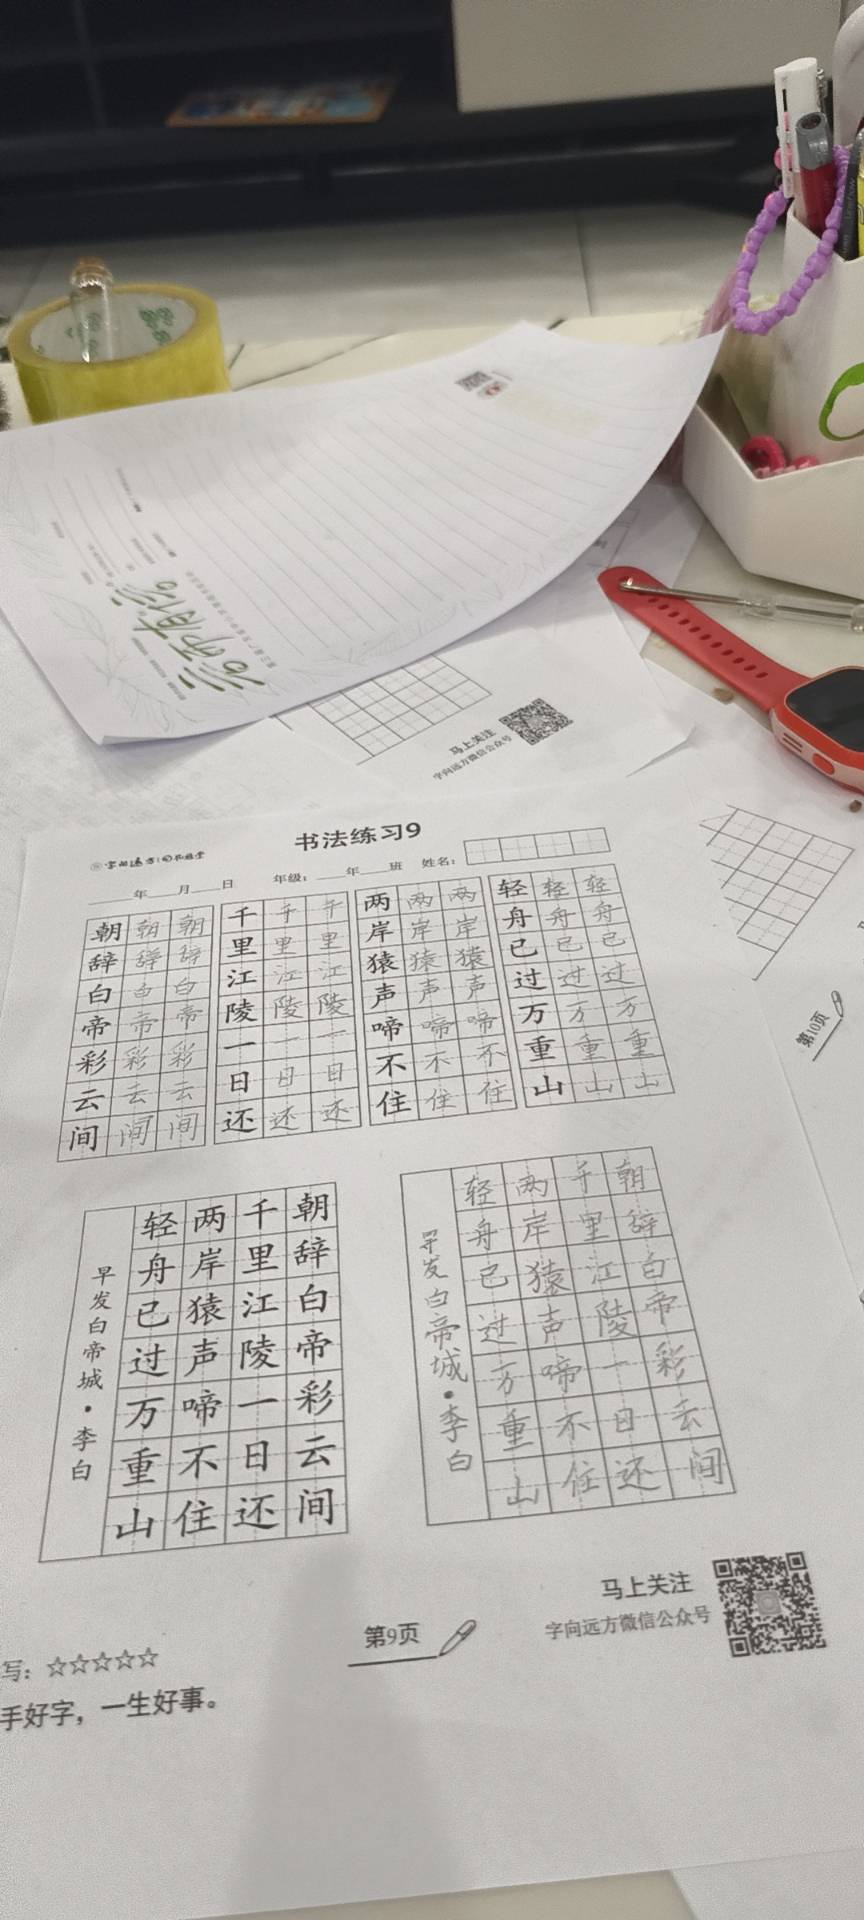 马上关注
字向远方微信公众号
书法练习9
年 月 日 年级： 年 班 姓名：
朝朝朝 千千千 两两两 轻轻轻
辞辞辞 里里里 岸岸岸 舟舟舟
白白白 江江江 猿猿猿 已已已
帝帝帝 陵陵陵 声声声 过过过
彩彩彩 一一一 啼啼啼 万万万
云云云 日日日 不不不 重重重
间间间 还还还 住住住 山山山
第10页
朝辞白帝彩云间
千里江陵一日还
两岸猿声啼不住
轻舟已过万重山
早发白帝城·李白
朝辞白帝彩云间
千里江陵一日还
两岸猿声啼不住
轻舟已过万重山
早发白帝城·李白
马上关注
字向远方微信公众号
第9页
写：☆☆☆☆☆
手好字，一生好事。